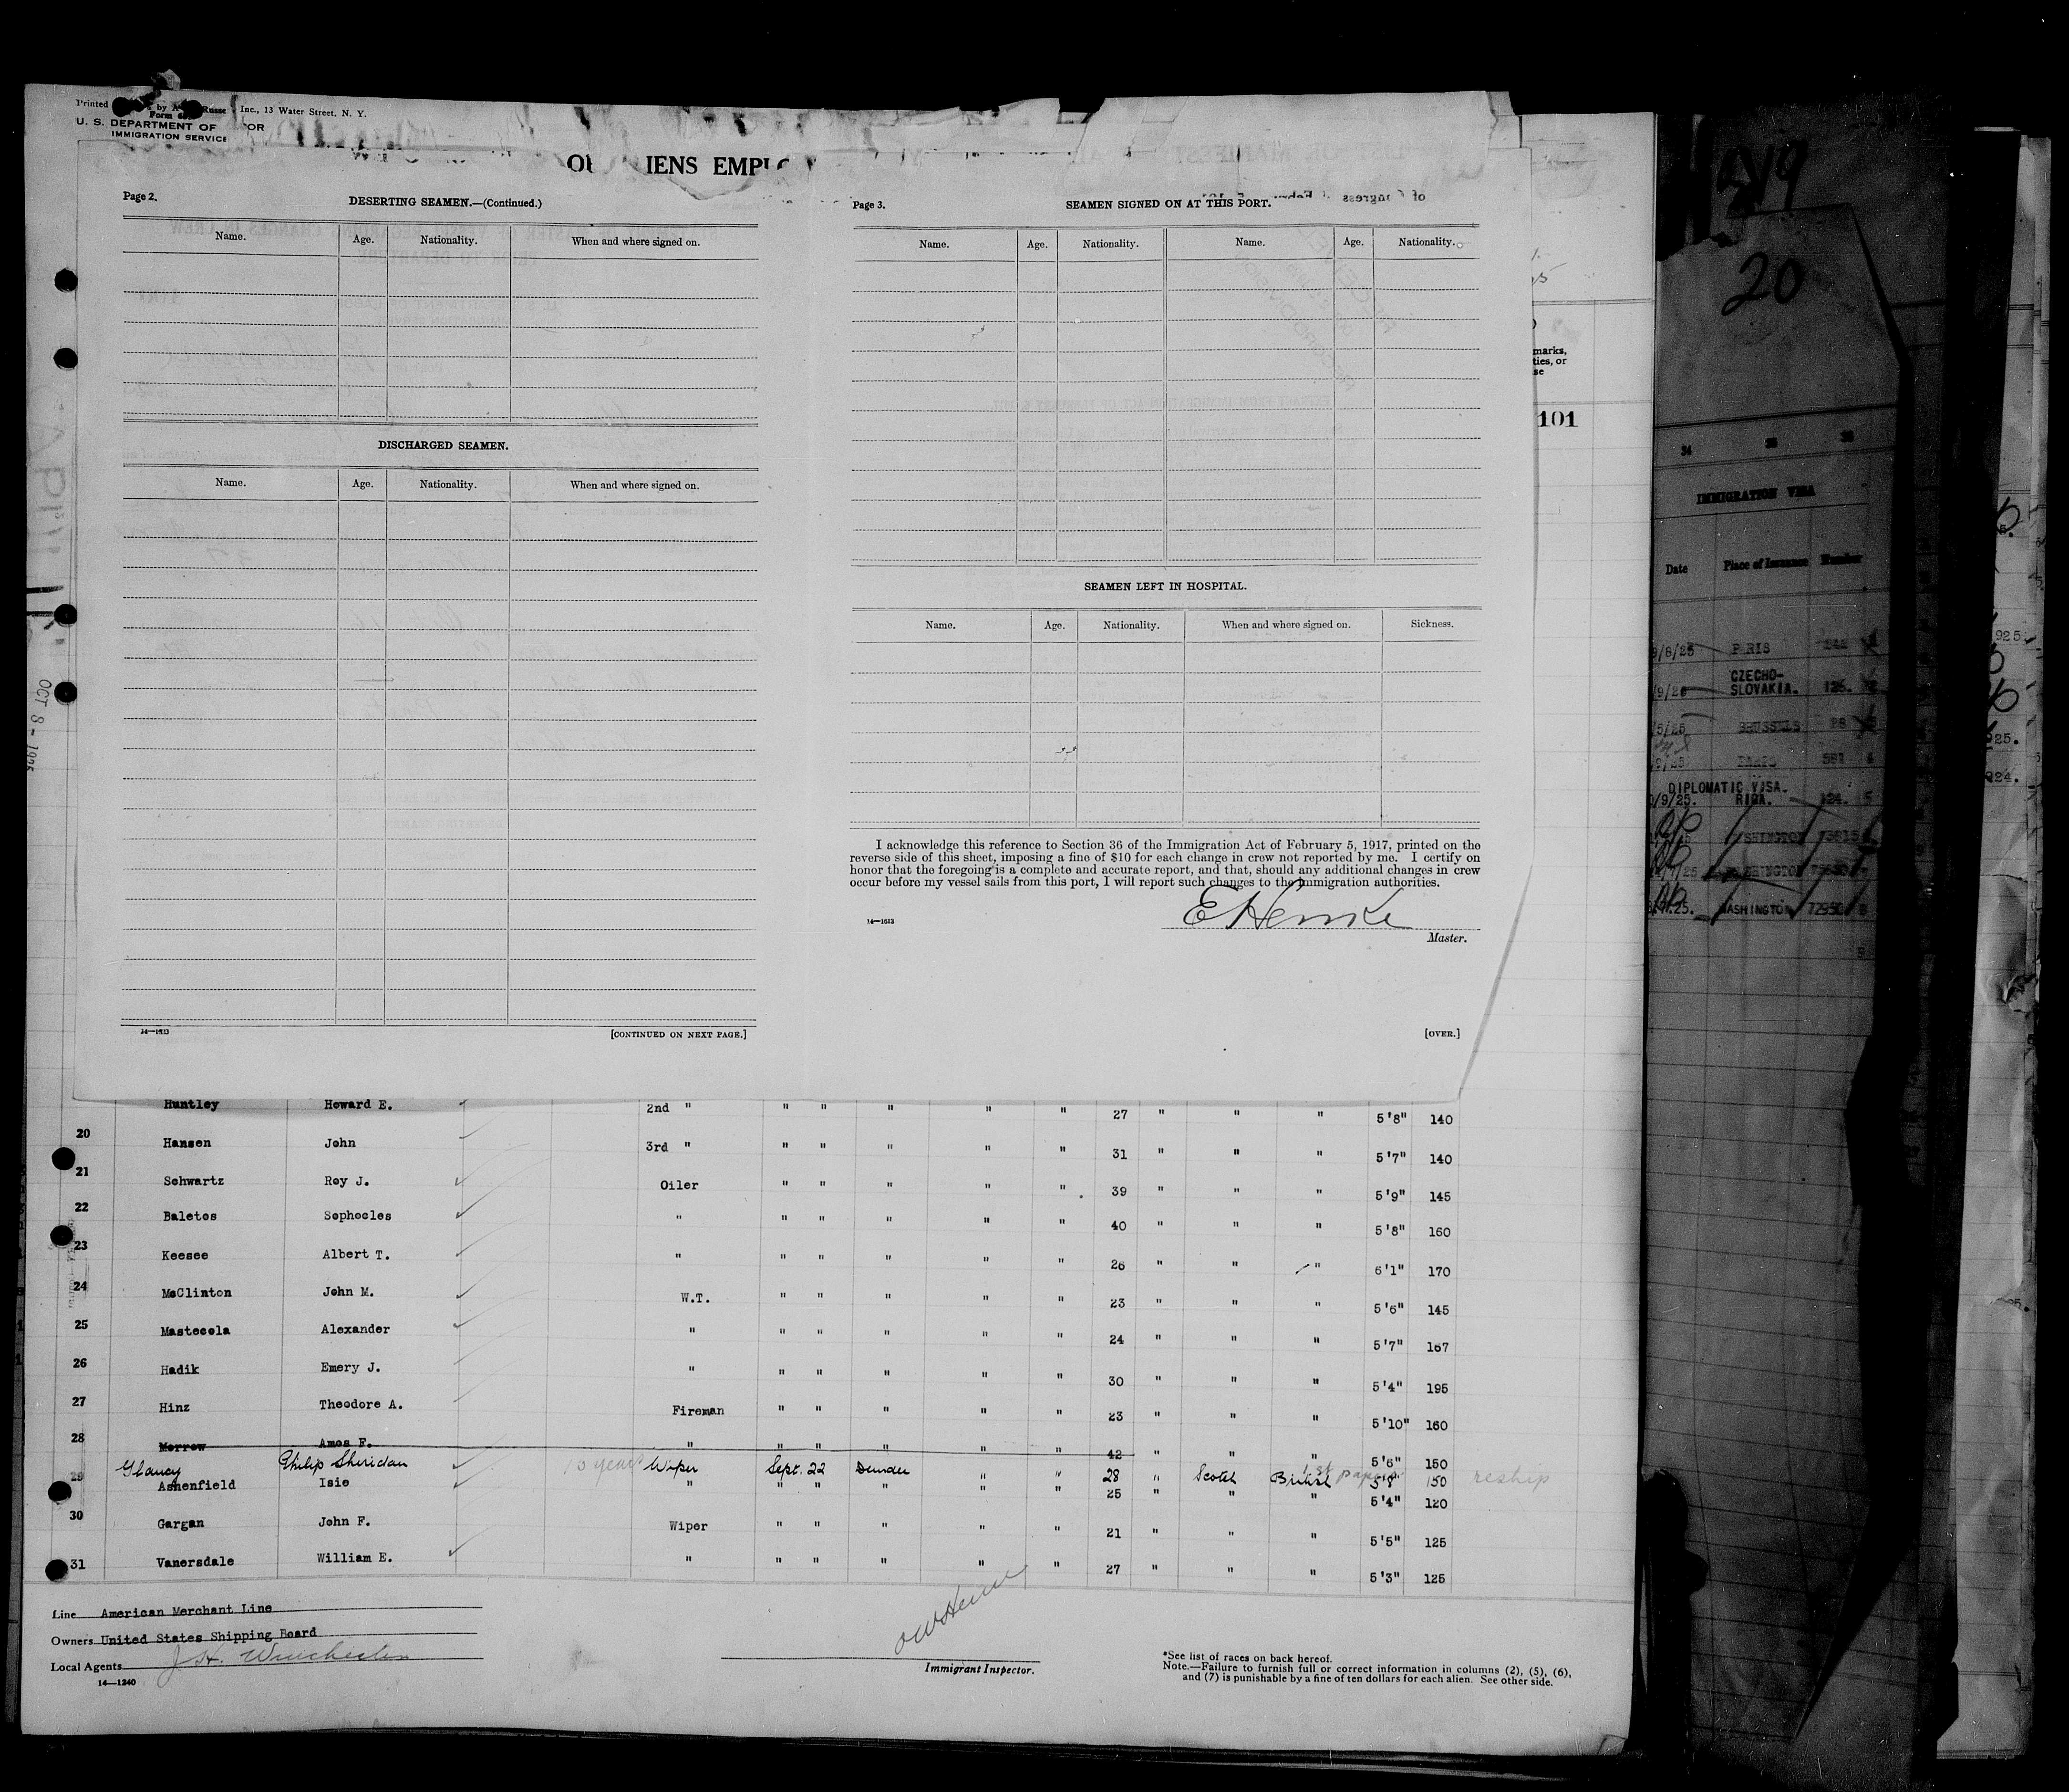 Printed by Inc., 13 Water Street, N. Y.
Form
U. S. DEPARTMENT OF OR
IMMIGRATION SERVICE
IENS EMPLO
Page 2.
DESERTING SEAMEN.—(Continued.)
Name. Age. Nationality. When and where signed on.
DISCHARGED SEAMEN.
Name. Age. Nationality. When and where signed on.
14—1613
[CONTINUED ON NEXT PAGE.]
Page 3.
SEAMEN SIGNED ON AT THIS PORT.
Name. Age. Nationality. Name. Age. Nationality.
SEAMEN LEFT IN HOSPITAL.
Name. Age. Nationality. When and where signed on. Sickness.
I acknowledge this reference to Section 36 of the Immigration Act of February 5, 1917, printed on the
reverse side of this sheet, imposing a fine of $10 for each change in crew not reported by me. I certify on
honor that the foregoing is a complete and accurate report, and that, should any additional changes in crew
occur before my vessel sails from this port, I will report such changes to the immigration authorities.
14—1613
E Henke
Master.
[OVER.]
marks,
ties, or
se
101
OCT 8 - 1925
Huntley Howard E. 2nd " " " " " " 27 " " " 5'8" 140
20 Hansen John 3rd " " " " " " 31 " " " 5'7" 140
21 Schwartz Roy J. Oiler " " " " " 39 " " " 5'9" 145
22 Baletos Sophocles " " " " " " 40 " " " 5'8" 160
23 Keesee Albert T. " " " " " " 26 " " " 6'1" 170
24 McClinton John M. W.T. " " " " " 23 " " " 5'6" 145
25 Mastecola Alexander " " " " " " 24 " " " 5'7" 167
26 Hadik Emery J. " " " " " " 30 " " " 5'4" 195
27 Hinz Theodore A. Fireman " " " " " 23 " " " 5'10" 160
28 Morrow Amos F. " " " " " " 42 " " " 5'6" 150
Glancy Philip Sheridan 10 years Wiper Sept. 22 Dundee " " 28 " Scotch British 1st papers 5'8" 150 reship
29 Ashenfield Isie " " " " " " 25 " " " 5'4" 120
30 Gargan John F. Wiper " " " " " 21 " " " 5'5" 125
31 Vanersdale William E. " " " " " " 27 " " " 5'3" 125
Line American Merchant Line
Owners United States Shipping Board
Local Agents J. H. Winchester
14—1240
Immigrant Inspector.
*See list of races on back hereof.
Note.—Failure to furnish full or correct information in columns (2), (5), (6),
and (7) is punishable by a fine of ten dollars for each alien. See other side.
20
34 35 36
IMMIGRATION VISA
Date Place of Issuance Number
9/8/25 PARIS
CZECHO-
SLOVAKIA. 126.
/5/25 BRUSSELS 88
PARIS 591
DIPLOMATIC VISA.
/9/25. RIGA. 124. 5
WASHINGTON
WASHINGTON
WASHINGTON 72950 8
925.
925.
924.